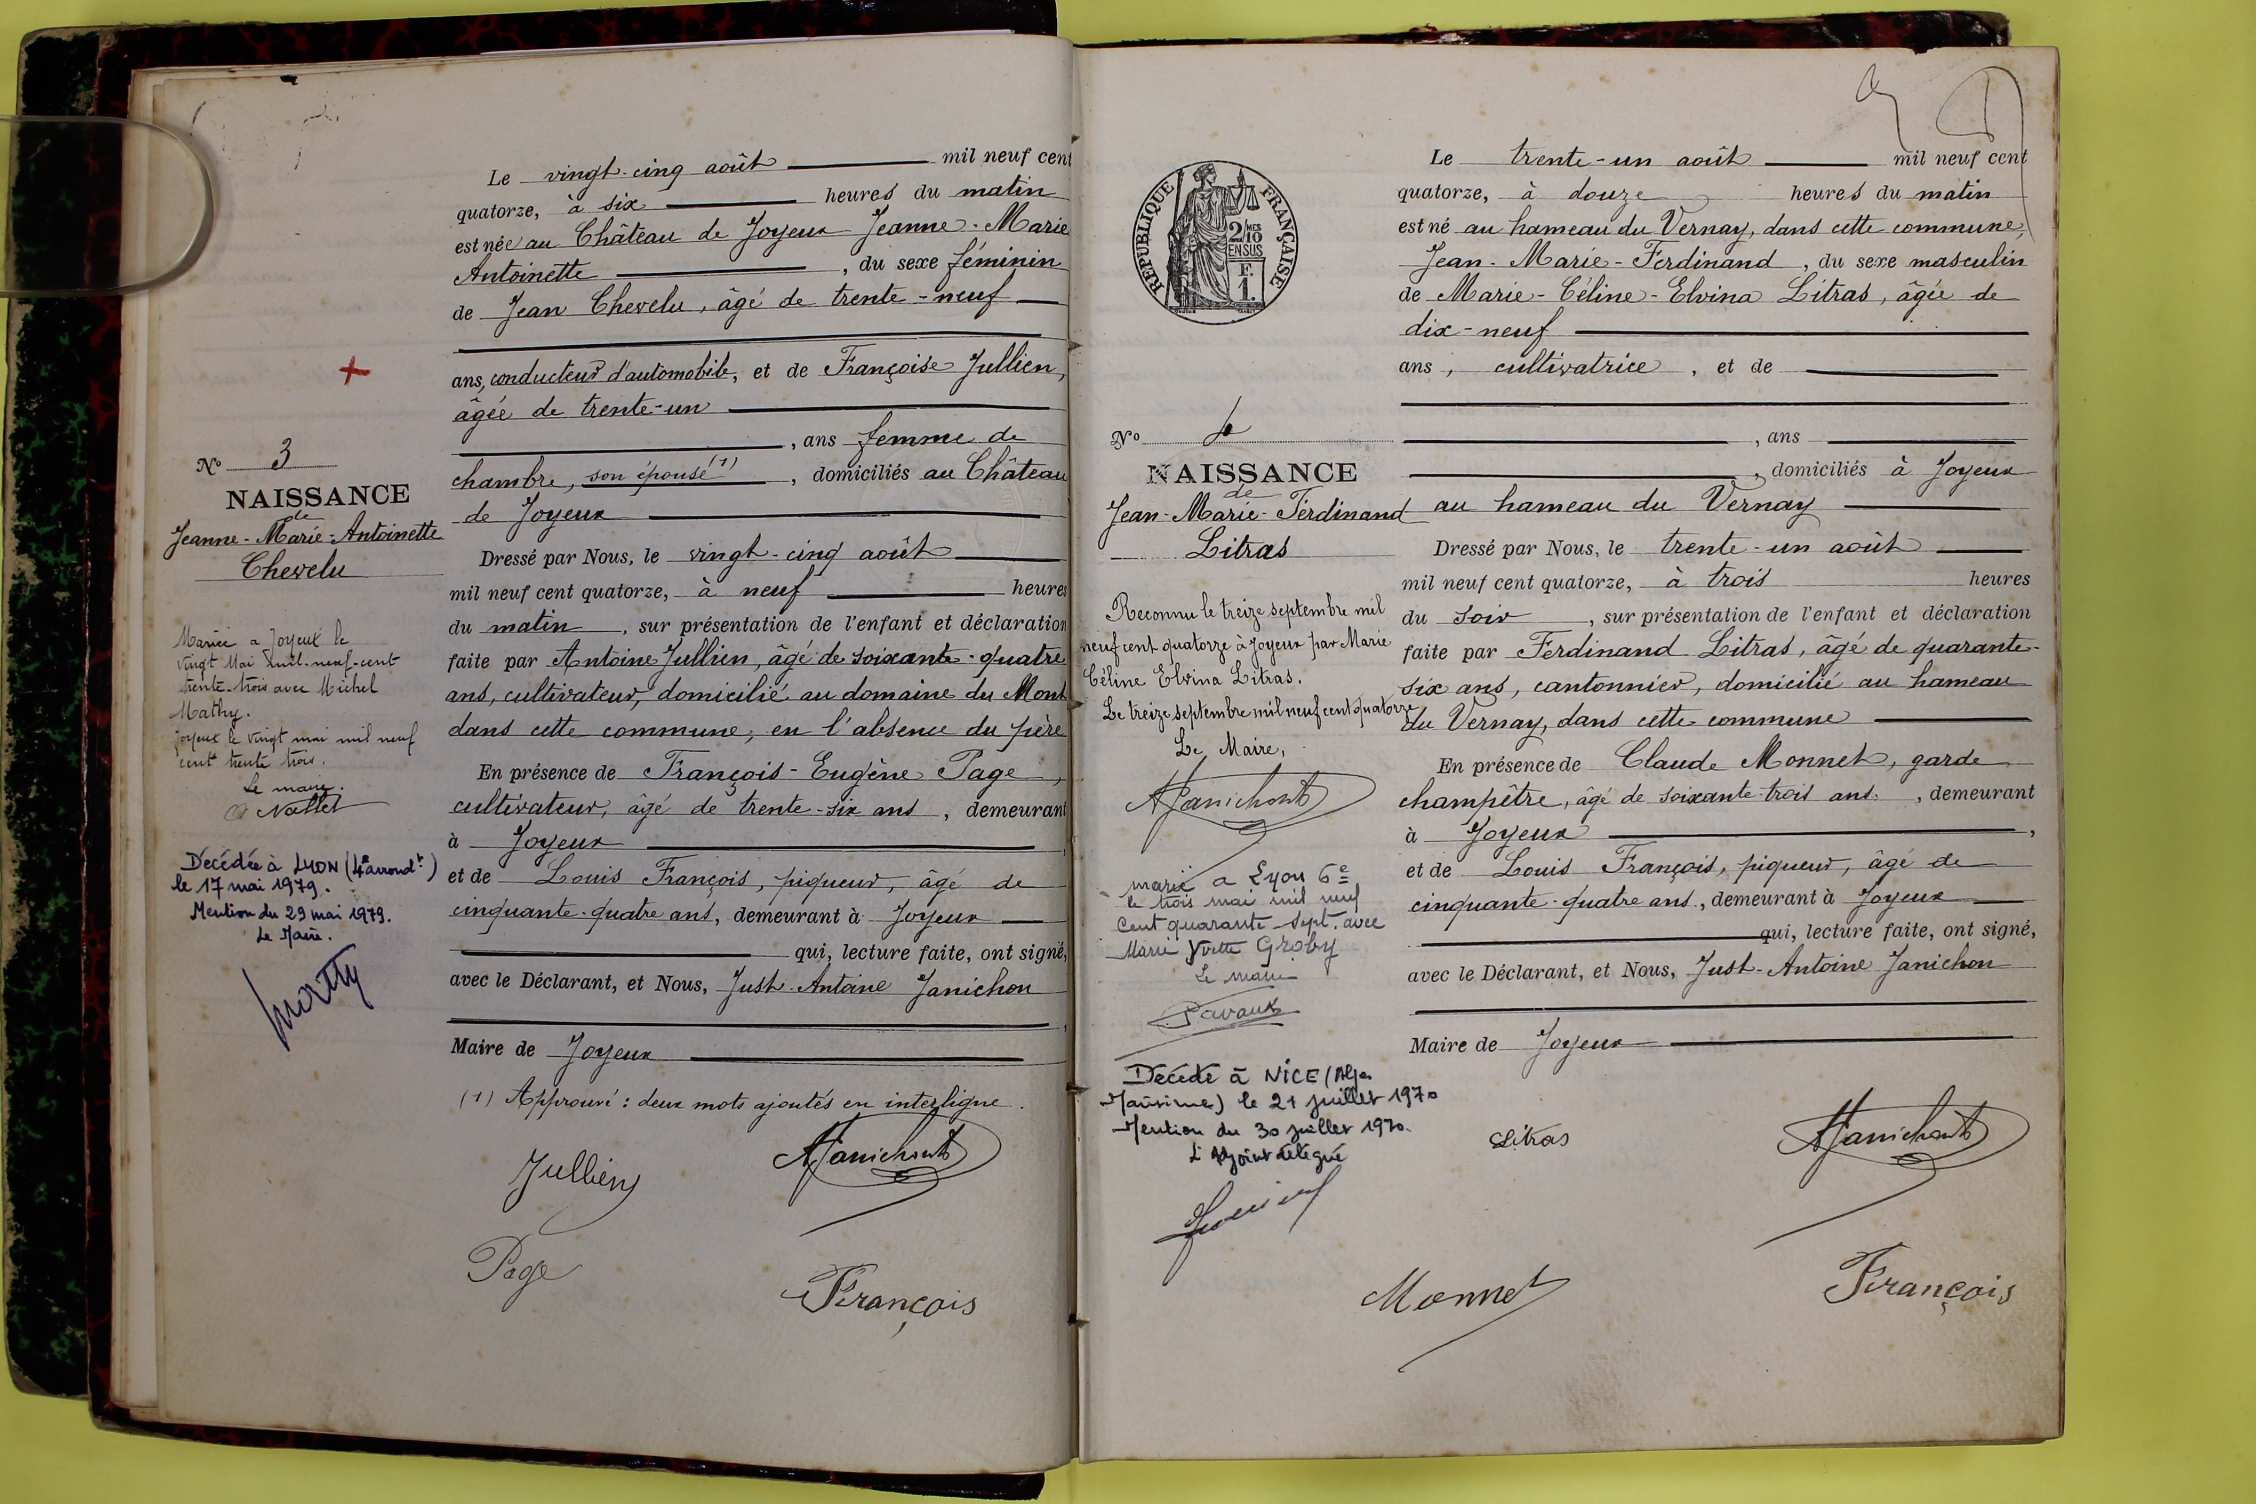 Le vingt-cinq août mil neuf cent
quatorze, à six heures du matin
est née au Château de Joyeux Jeanne-Marie
Antoinette, du sexe féminin
de Jean Chevelu, âgé de trente-neuf
ans, conducteur d'automobile, et de Françoise Jullien,
âgée de trente-un
, ans femme de
chambre, son épouse (1), domiciliés au Château
de Joyeux
Dressé par Nous, le vingt-cinq août
mil neuf cent quatorze, à neuf heures
du matin, sur présentation de l'enfant et déclaration
faite par Antoine Jullien, âgé de soixante-quatre
ans, cultivateur, domicilié au domaine du Mont
dans cette commune, en l'absence du père
En présence de François-Eugène Page,
cultivateur, âgé de trente-six ans, demeurant
à Joyeux
et de Louis François, piqueur, âgé de
cinquante-quatre ans, demeurant à Joyeux
qui, lecture faite, ont signé,
avec le Déclarant, et Nous, Just-Antoine Janichon
Maire de Joyeux
(1) Approuvé : deux mots ajoutés en interligne.
Jullien
AJanichon
Page
François
No 3
NAISSANCE
de
Jeanne-Marie-Antoinette
Chevelu
Mariée a Joyeux le
vingt Mai mil-neuf-cent
trente-trois avec Michel
Mathy.
Joyeux le vingt mai mil neuf
cent trente trois.
Le maire.
Décédée à LYON (4e arrondt)
le 17 mai 1979.
Mention du 29 mai 1979.
Le Maire.
RÉPUBLIQUE FRANÇAISE
2/10 MES
EN SUS
F.
1.
No 4
NAISSANCE
de
Jean-Marie-Ferdinand
Litras
Reconnu le treize septembre mil
neuf cent quatorze à Joyeux par Marie
Céline Elvina Litras.
Le treize septembre mil neuf cent quatorze
Le Maire,
AJanichon
marié a Lyon 6e
le trois mai mil neuf
cent quarante-sept. avec
Marie Yvette Groby
Le maire
Décédé à NICE (Alpes
Maritimes) le 21 juillet 1970
Mention du 30 juillet 1970.
L'Adjoint délégué
Le trente-un août mil neuf cent
quatorze, à douze heures du matin
est né au hameau du Vernay, dans cette commune,
Jean-Marie-Ferdinand, du sexe masculin
de Marie-Céline-Elvina Litras, âgée de
dix-neuf
ans, cultivatrice, et de
, ans
, domiciliés à Joyeux
au hameau du Vernay
Dressé par Nous, le trente-un août
mil neuf cent quatorze, à trois heures
du soir, sur présentation de l'enfant et déclaration
faite par Ferdinand Litras, âgé de quarante-
six ans, cantonnier, domicilié au hameau
du Vernay, dans cette commune
En présence de Claude Monnet, garde
champêtre, âgé de soixante-trois ans., demeurant
à Joyeux,
et de Louis François, piqueur, âgé de
cinquante-quatre ans, demeurant à Joyeux
qui, lecture faite, ont signé,
avec le Déclarant, et Nous, Just-Antoine Janichon
Maire de Joyeux
Litras
AJanichon
Monnet
François